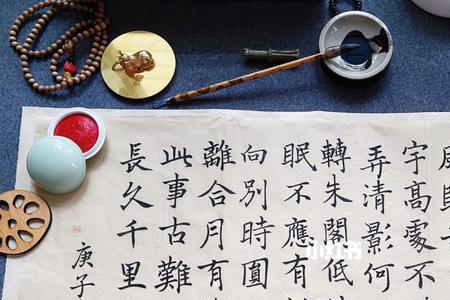 宇高處不
弄清影何
轉朱閣低
眠不應有
向別時圓
離合月有
此事古難
長久千里
庚子
小红书